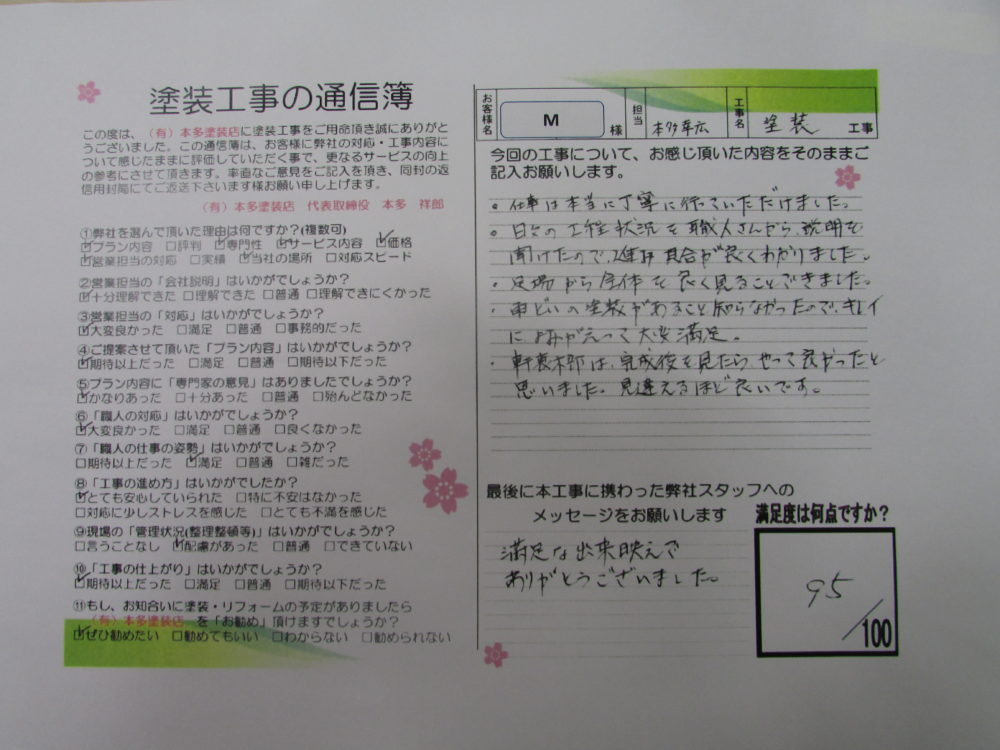 塗装工事の通信簿
この度は、（有）本多塗装店に塗装工事をご用命頂き誠にありがと
うございました。この通信簿は、お客様に弊社の対応・工事内容に
ついて感じたままに評価していただく事で、更なるサービスの向上
の参考にさせて頂きます。率直なご意見をご記入を頂き、同封の返
信用封筒にてご返送下さいます様お願い申し上げます。
（有）本多塗装店　代表取締役　本多　祥郎
①弊社を選んで頂いた理由は何ですか？(複数可)
☑プラン内容　□評判　☑専門性　☑サービス内容　☑価格
☑営業担当の対応　□実績　☑当社の場所　□対応スピード
②営業担当の「会社説明」はいかがでしょうか？
☑十分理解できた □理解できた □普通 □理解できにくかった
③営業担当の「対応」はいかがでしょうか？
☑大変良かった　□満足　□普通　□事務的だった
④ご提案させて頂いた「プラン内容」はいかがでしょうか？
☑期待以上だった　□満足　□普通　□期待以下だった
⑤プラン内容に「専門家の意見」はありましたでしょうか？
☑かなりあった　□十分あった　□普通　□殆んどなかった
⑥「職人の対応」はいかがでしょうか？
☑大変良かった　□満足　□普通　□良くなかった
⑦「職人の仕事の姿勢」はいかがでしょうか？
□期待以上だった　☑満足　□普通　□雑だった
⑧「工事の進め方」はいかがでしたか？
☑とても安心していられた　□特に不安はなかった
□対応に少しストレスを感じた　□とても不満を感じた
⑨現場の「管理状況(整理整頓等)」はいかがでしょうか？
□言うことなし　☑配慮があった　□普通　□できていない
⑩「工事の仕上がり」はいかがでしょうか？
☑期待以上だった　□満足　□普通　□期待以下だった
⑪もし、お知合いに塗装・リフォームの予定がありましたら
（有）本多塗装店　を「お勧め」頂けますでしょうか？
☑ぜひ勧めたい　□勧めてもいい　□わからない　□勧められない
お客様名　M　様　担当　本多幸広　工事名　塗装　工事
今回の工事について、お感じ頂いた内容をそのままご
記入お願いします。
・仕事は本当に丁寧に行っていただけました。
・日々の工程状況を職人さんから説明を
聞けたので、進行具合が良くわかりました。
・足場から全体を良く見ることできました。
・雨どいの塗装があること知らなかったので、キレイ
によみがえって大変満足。
・軒裏木部は、完成後を見たら、やって良かったと
思いました。見違えるほど良いです。
最後に本工事に携わった弊社スタッフへの
メッセージをお願いします
満足な出来映えで
ありがとうございました。
満足度は何点ですか？
95
／100